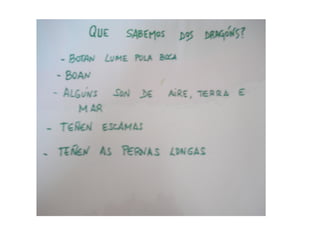 QUE SABEMOS DOS DRAGÓNS?
- BOTAN LUME POLA BOCA
- BOAN
- ALGÚNS SON DE AIRE, TERRA E
MAR
- TEÑEN ESCAMAS
- TEÑEN AS PERNAS LONGAS